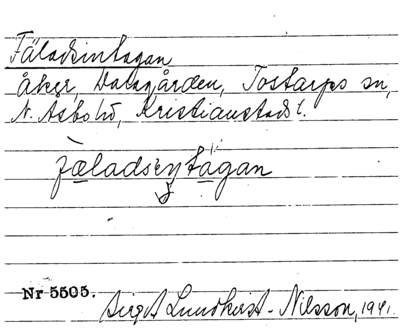 Fäladsintagan
åker, Dalsgården, Tostarps sn,
N. Åsbohd, Kristianstads l.
fæladsıŋtágan
Nr 5505.
Birgit Lundkvist-Nilsson, 1941.